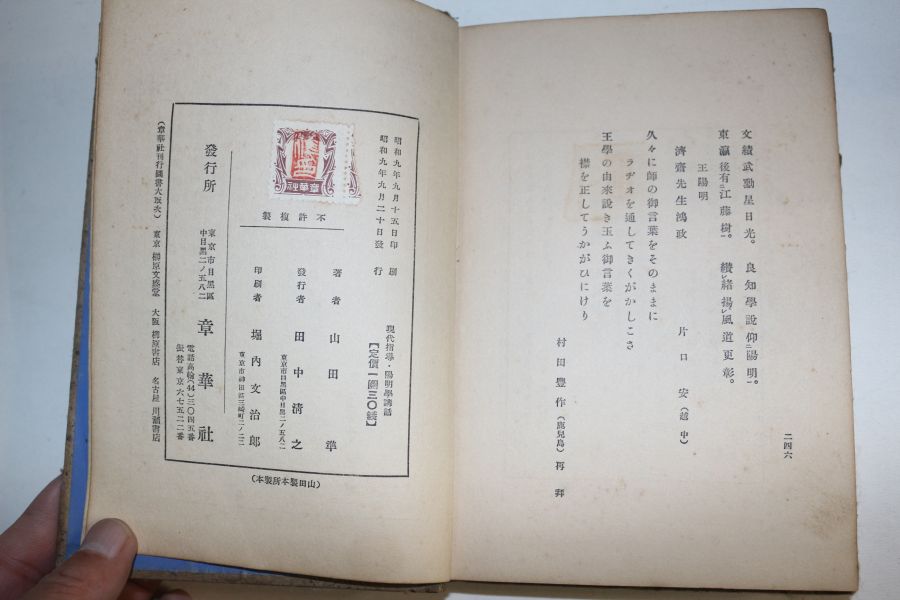 文績武勳星日光。良知學說仰ニ陽明一。
東瀛後有ニ江藤樹一。纘レ緖揚レ風道更彰。
王陽明
濟齋先生鴻政
片口安(越中)
久々に師の御言葉をそのままに
ラヂオを通してきくがかしこさ
王學の由來說き玉ふ御言葉を
襟を正してうかがひにけり
村田豐作(鹿兒島)再拜
二四六
現代指導・陽明學講話
【定價一圓三〇錢】
昭和九年九月十五日印刷
昭和九年九月二十日發行
章華社
不許複製
著者 山田準
東京市目黑區中目黑二ノ五八二
發行者 田中淸之
東京市神田區三崎町二ノ二二
印刷者 堀內文治郎
發行所
東京市目黑區
中目黑二ノ五八二
章華社
電話高輪(44)三〇四五番
振替東京六七五二二番
(山田製本所製本)
(章華社刊行圖書大取次) 東京 柳原文盛堂 大阪 柳原書店 名古屋 川瀨書店